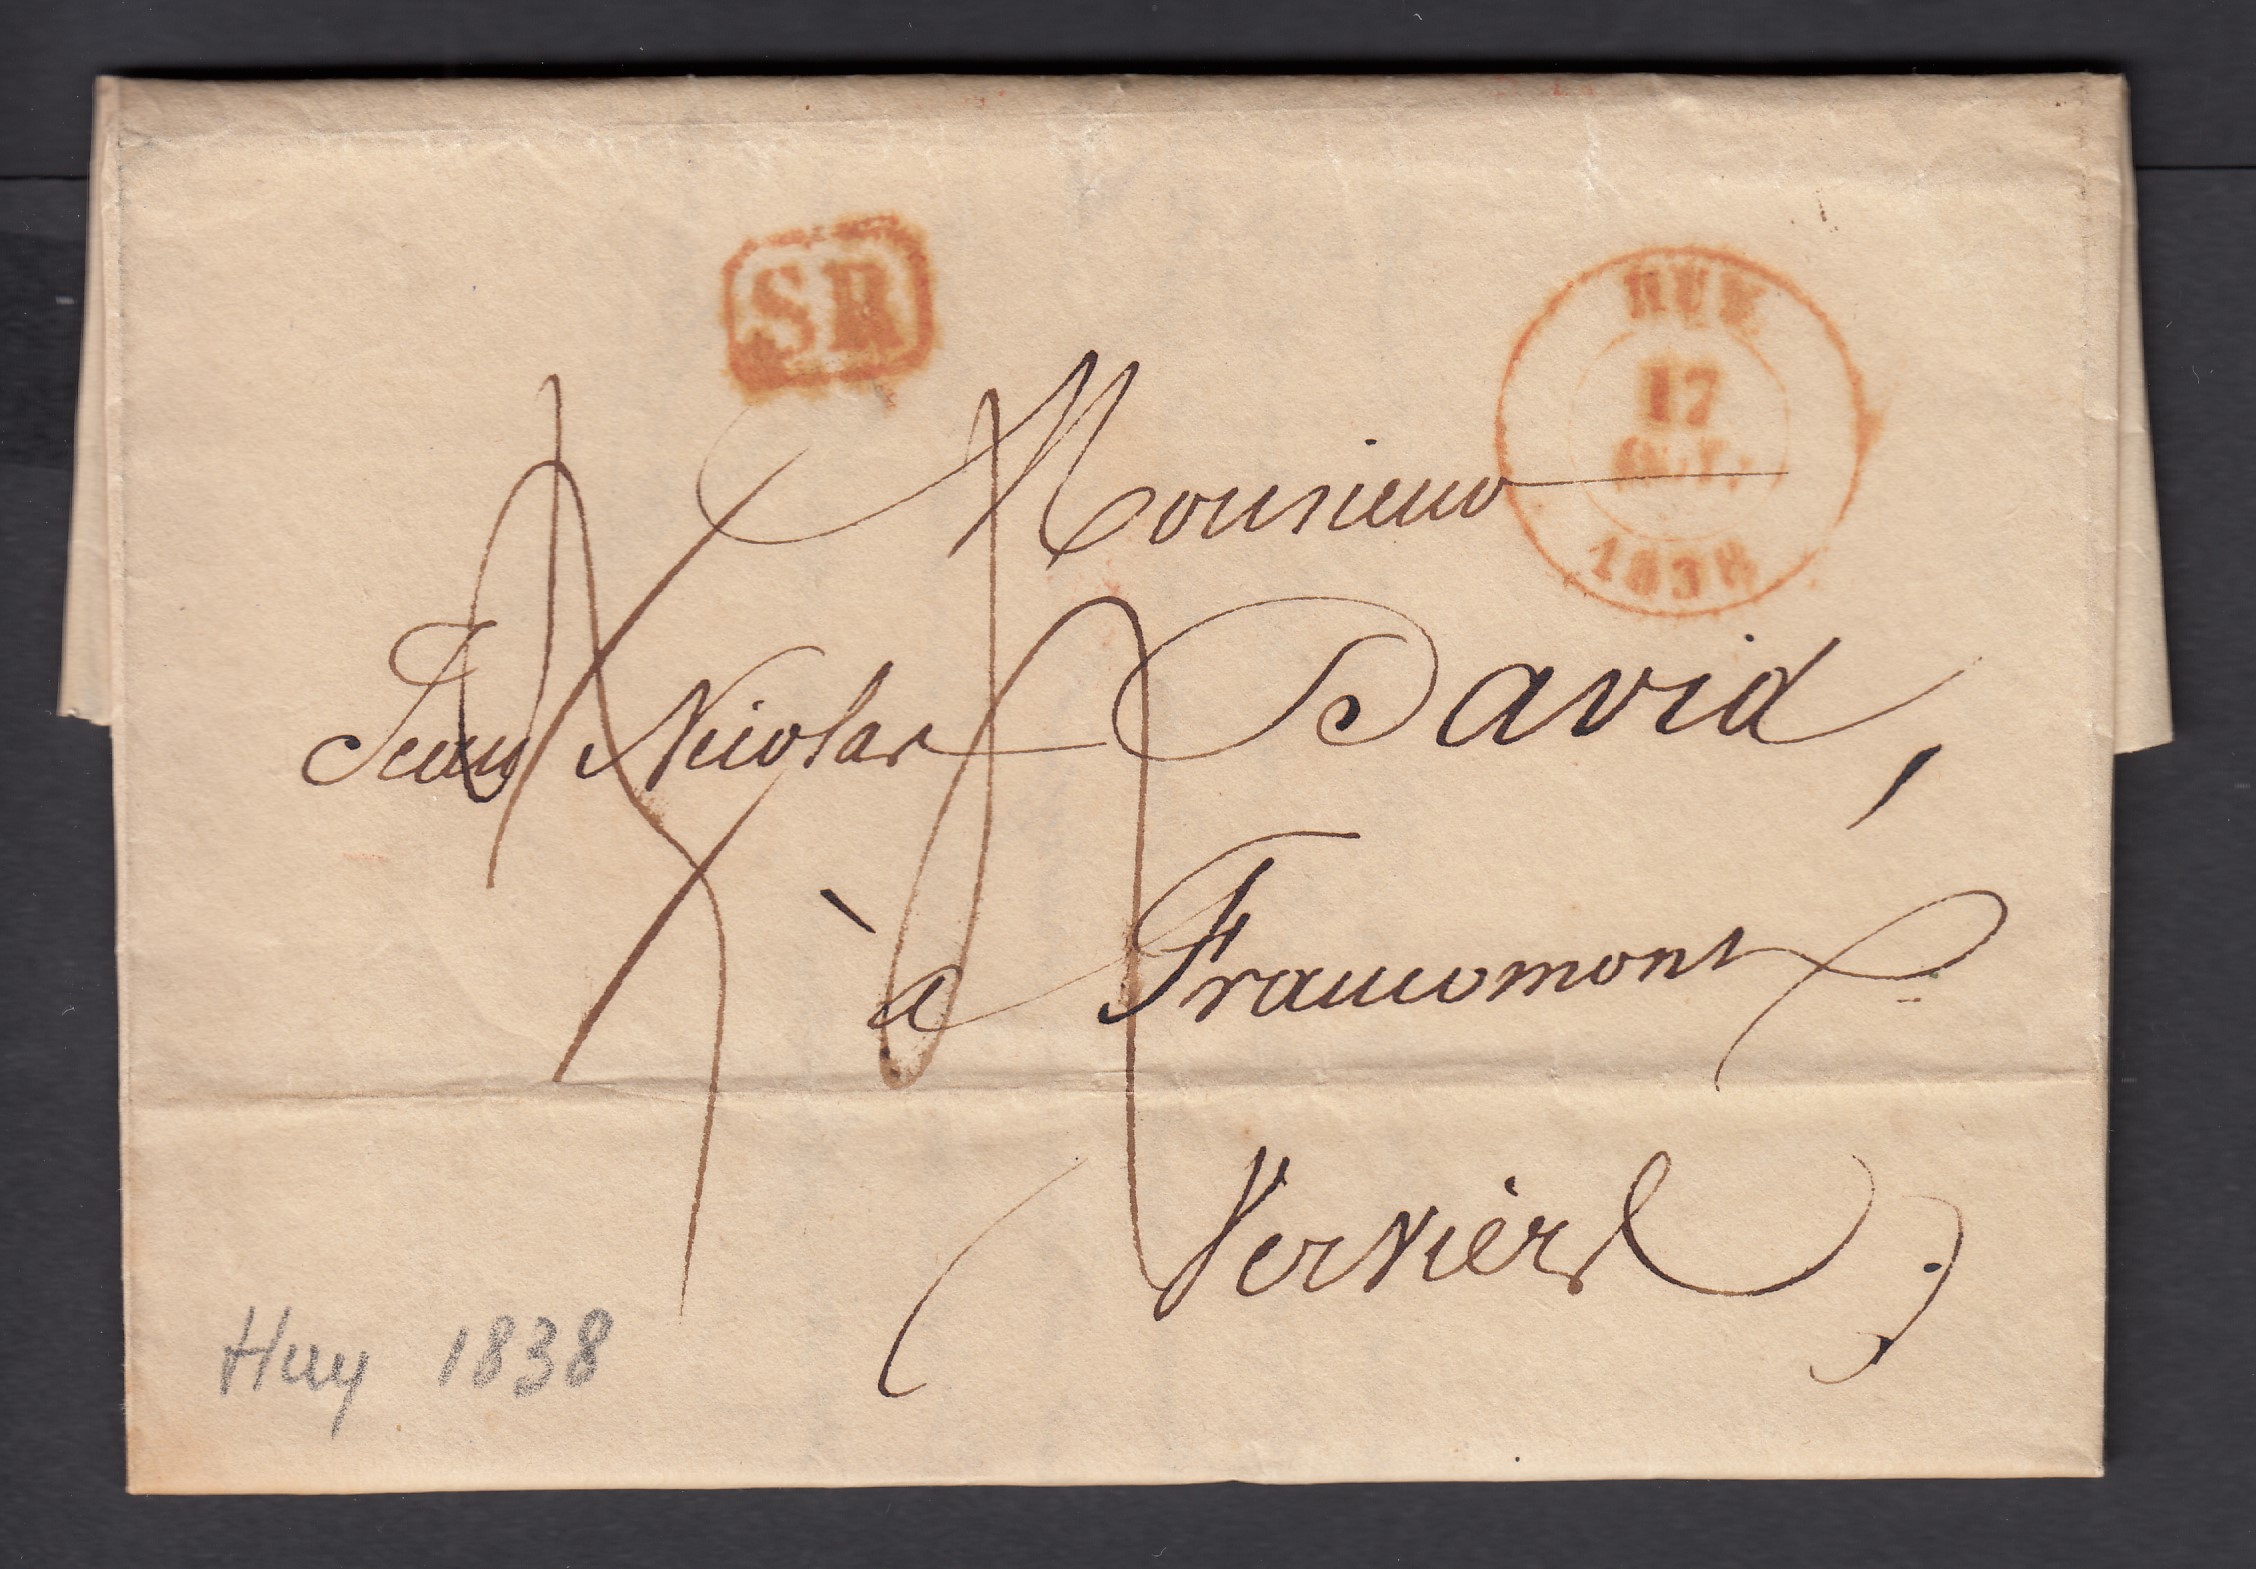 SR
HUY
17
OCT.
1838
Monsieur
Jean Nicolas David,
à Francomont
Verviers
Huy 1838